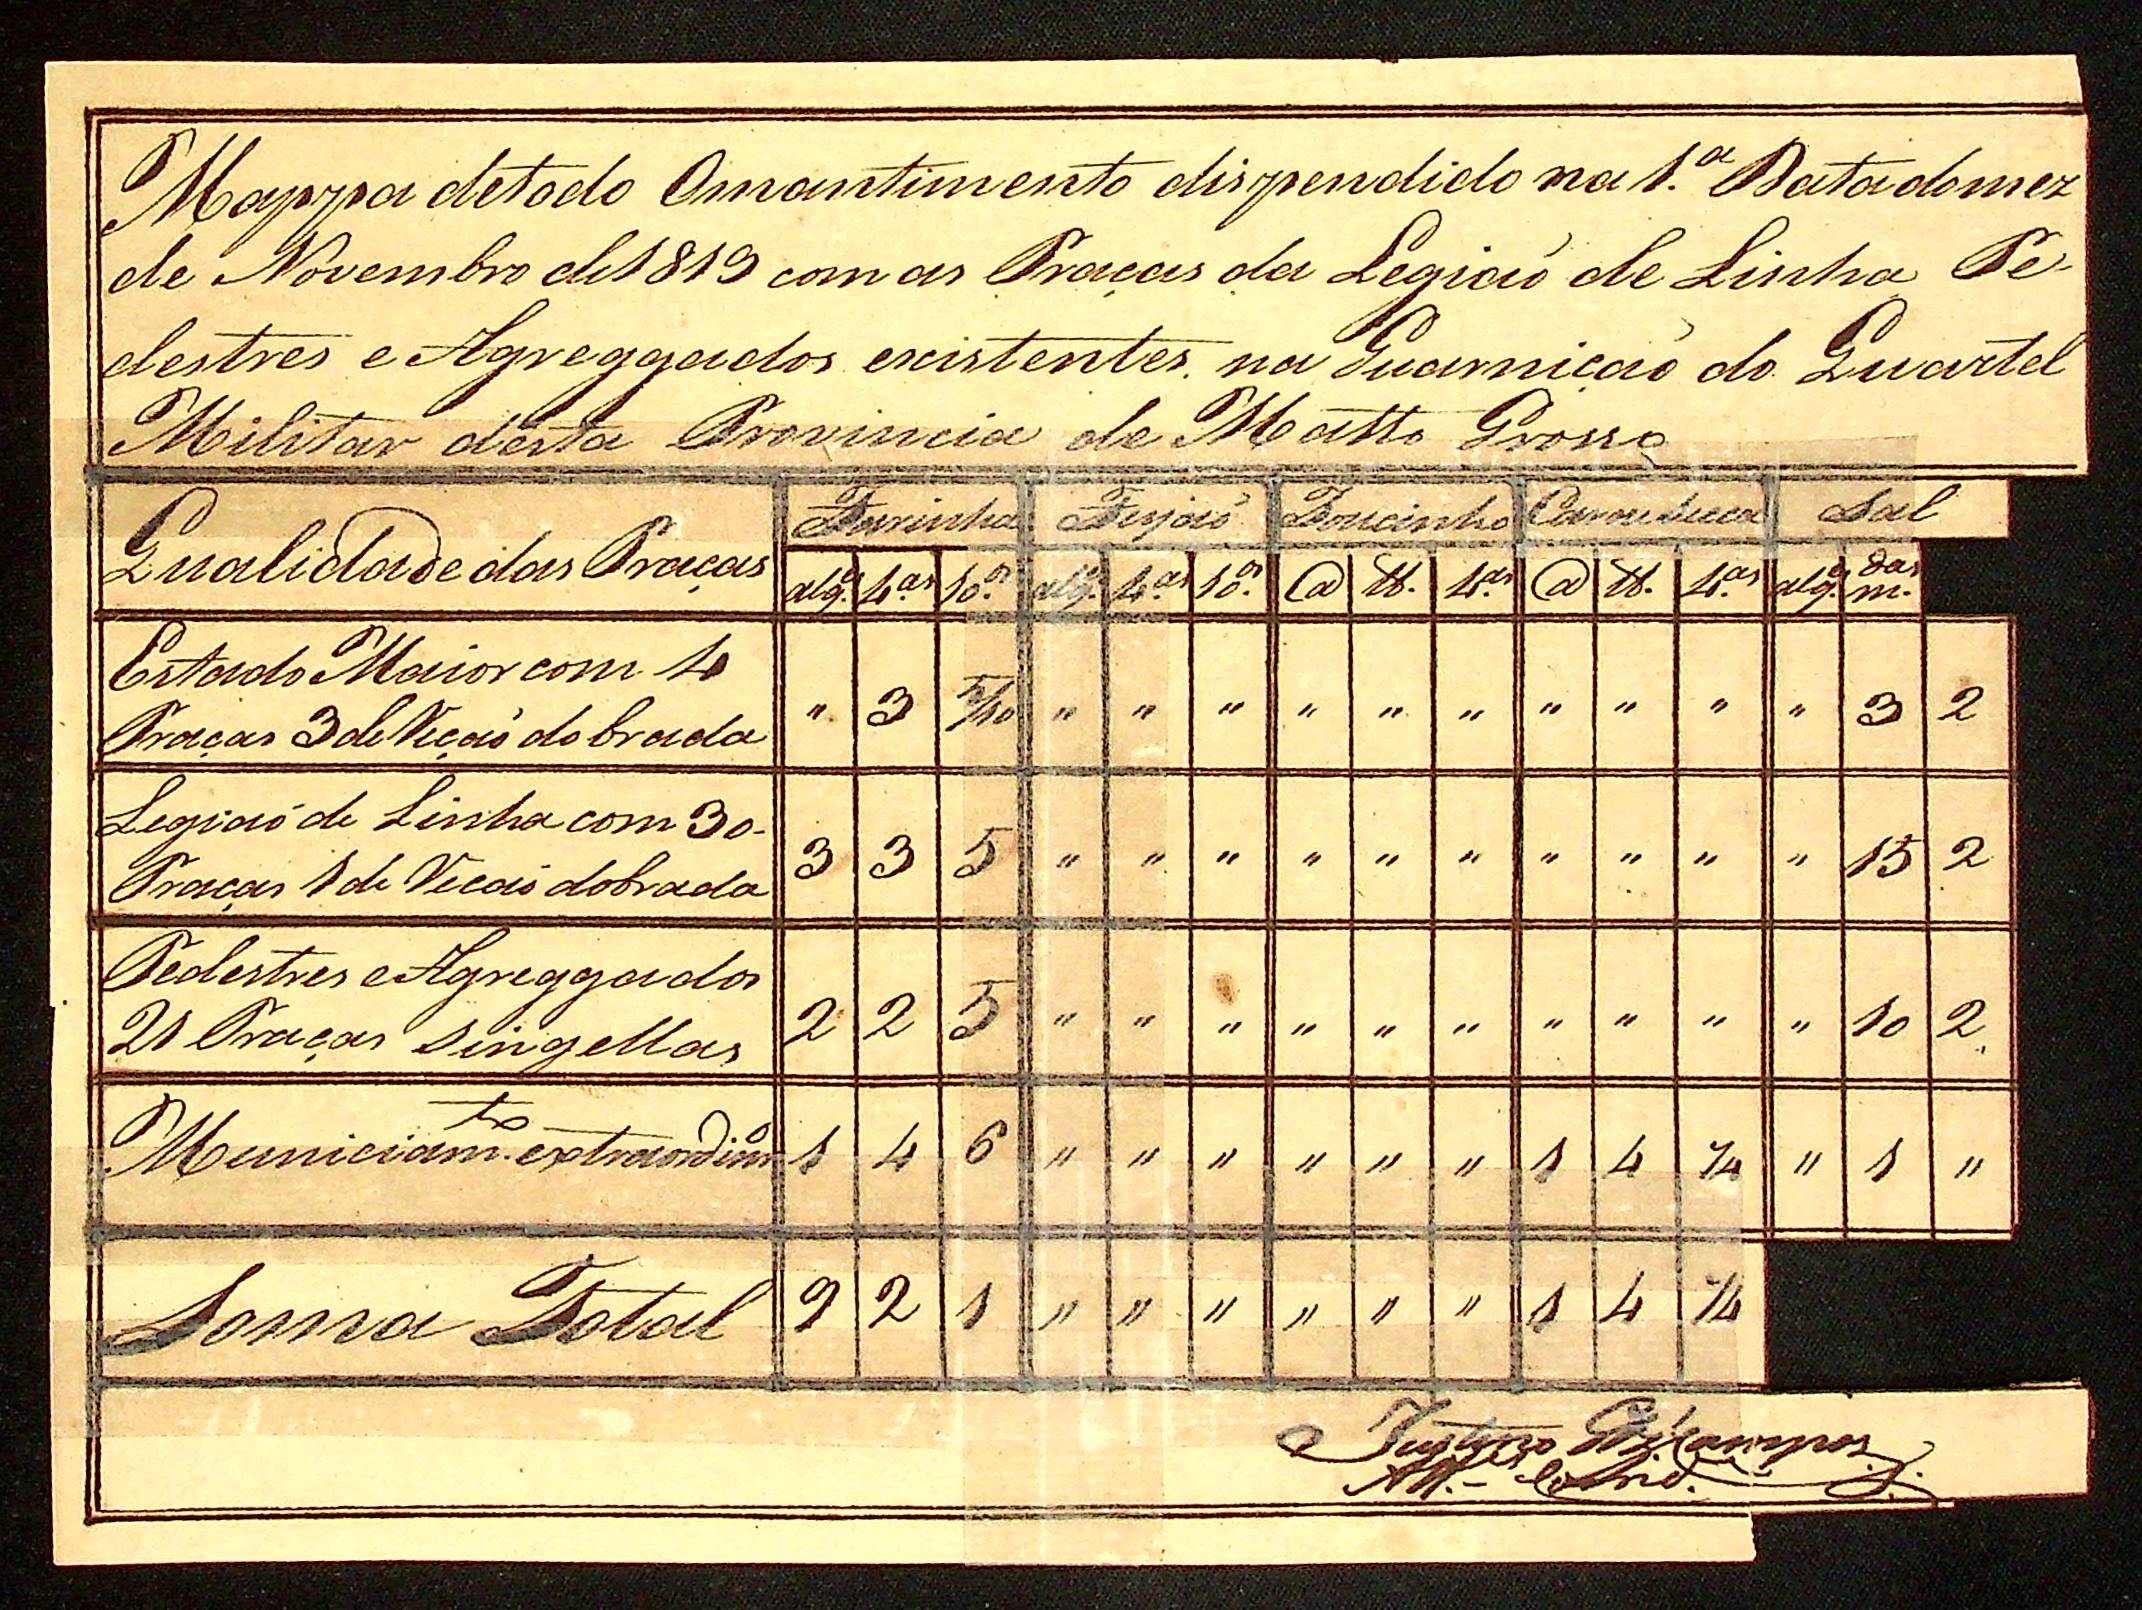 Mappa detodo Omantimento dispendido na 1.ª Datadomez
de Novembro de1819 com as Praças da Legiaó de Linha Pe-
destres e Agreggados existentes na Guarniçaó do Quartel
Militar desta Provincia de Matto Grosso
Qualidade das Praças Farinha Feijaó Toucinho Carne secca Sal
alq.s 4.as 10.os alq.s 4.as 10.os @ lb. 4.as @ lb. 4.as alq.s m.das
Estado Maior com 4
Praças 3 de Reçaó dobrada " 3 5/10 " " " " " " " " " " 3 2
Legiaó de Linha com 30-
Praças 1 de Recaó dobrada 3 3 5 " " " " " " " " " " 15 2
Pedestres e Agreggados
21 Praças singellas 2 2 5 " " " " " " " " " " 10 2
Municiam.to extraordinr.o 1 4 6 " " " " " " 1 4 /4 " 1 "
Soma Total 9 2 1 " " " " " " 1 4 /4
Campos